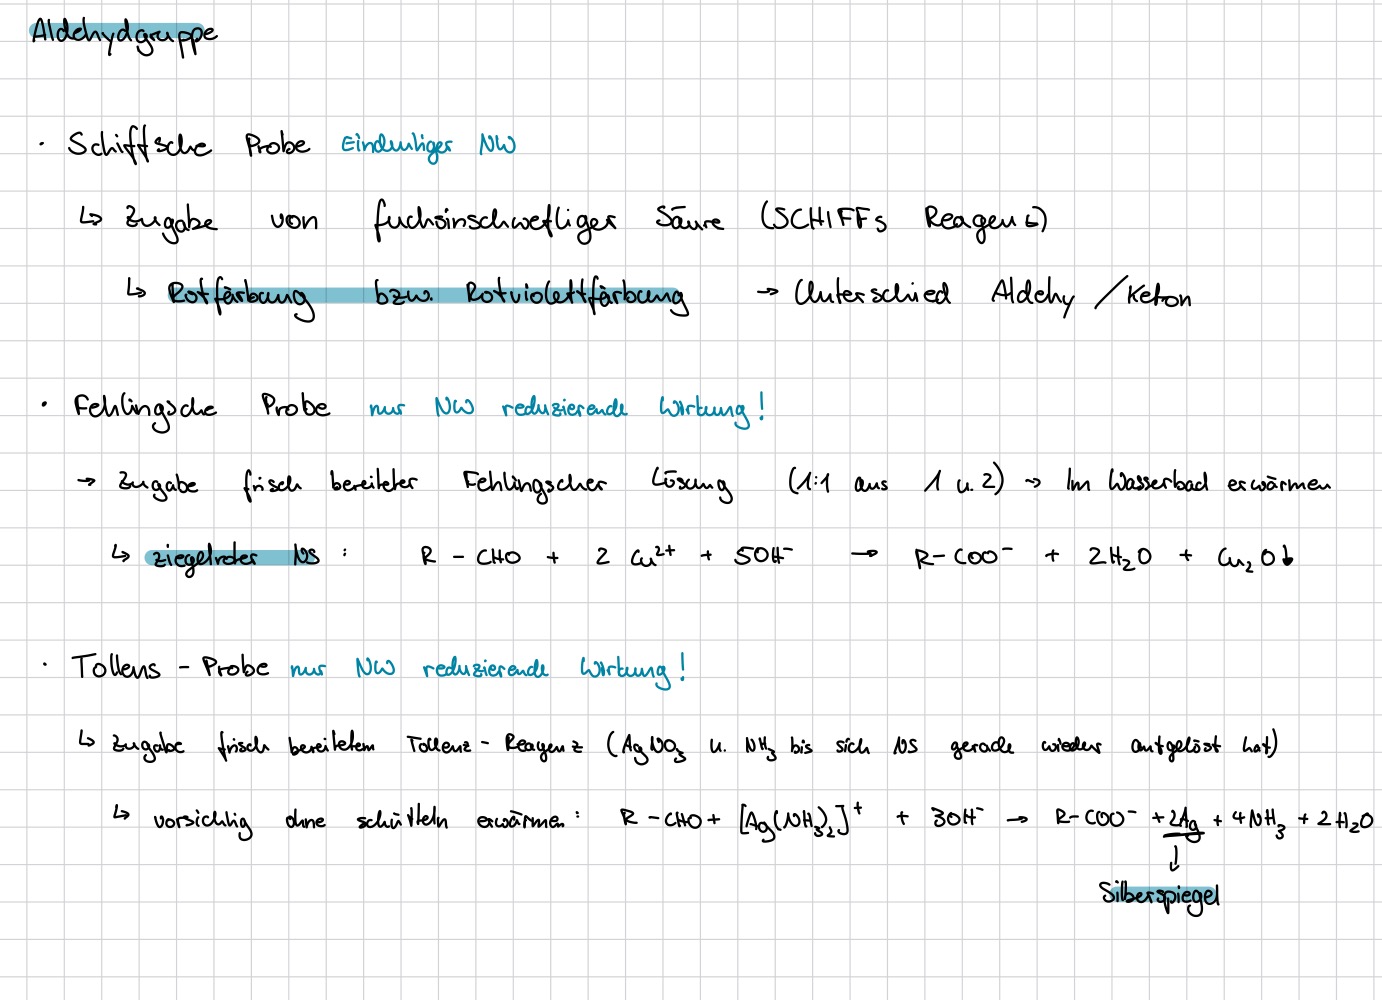 Aldehydgruppe
· Schiffsche Probe Eindeutiger NW
↳ Zugabe von fuchsinschwefliger Säure (SCHIFFs Reagenz)
↳ Rotfärbung bzw. Rotviolettfärbung → Unterschied Aldehy / Keton
· Fehlingsche Probe nur NW reduzierende Wirkung!
→ Zugabe frisch bereiteter Fehlingscher Lösung (1:1 aus 1 u. 2) → Im Wasserbad erwärmen
↳ ziegelroter NS : R - CHO + 2 Cu²⁺ + 5OH⁻ → R-COO⁻ + 2H₂O + Cu₂O↓
· Tollens - Probe nur NW reduzierende Wirkung!
↳ Zugabe frisch bereitetem Tollenz - Reagenz (AgNO₃ u. NH₃ bis sich NS gerade wieder aufgelöst hat)
↳ vorsichtig ohne schütteln erwärmen: R - CHO + [Ag(NH₃)₂]⁺ + 3OH⁻ → R-COO⁻ + 2Ag + 4NH₃ + 2H₂O
↓
Silberspiegel